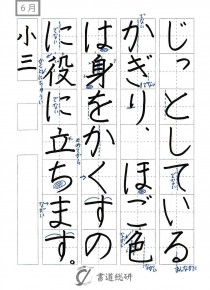 6月
じっとしている
かぎり、ほご色
は身をかくすの
に役に立ちます。
小三
書道総研